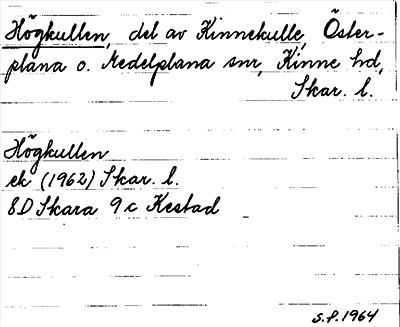 Högkullen, del av Kinnekulle, Öster-
plana o. Medelplana snr, Kinne hd,
Skar. l.
Högkullen
ek (1962) Skar. l.
8D Skara 9c Kestad
S.P. 1964